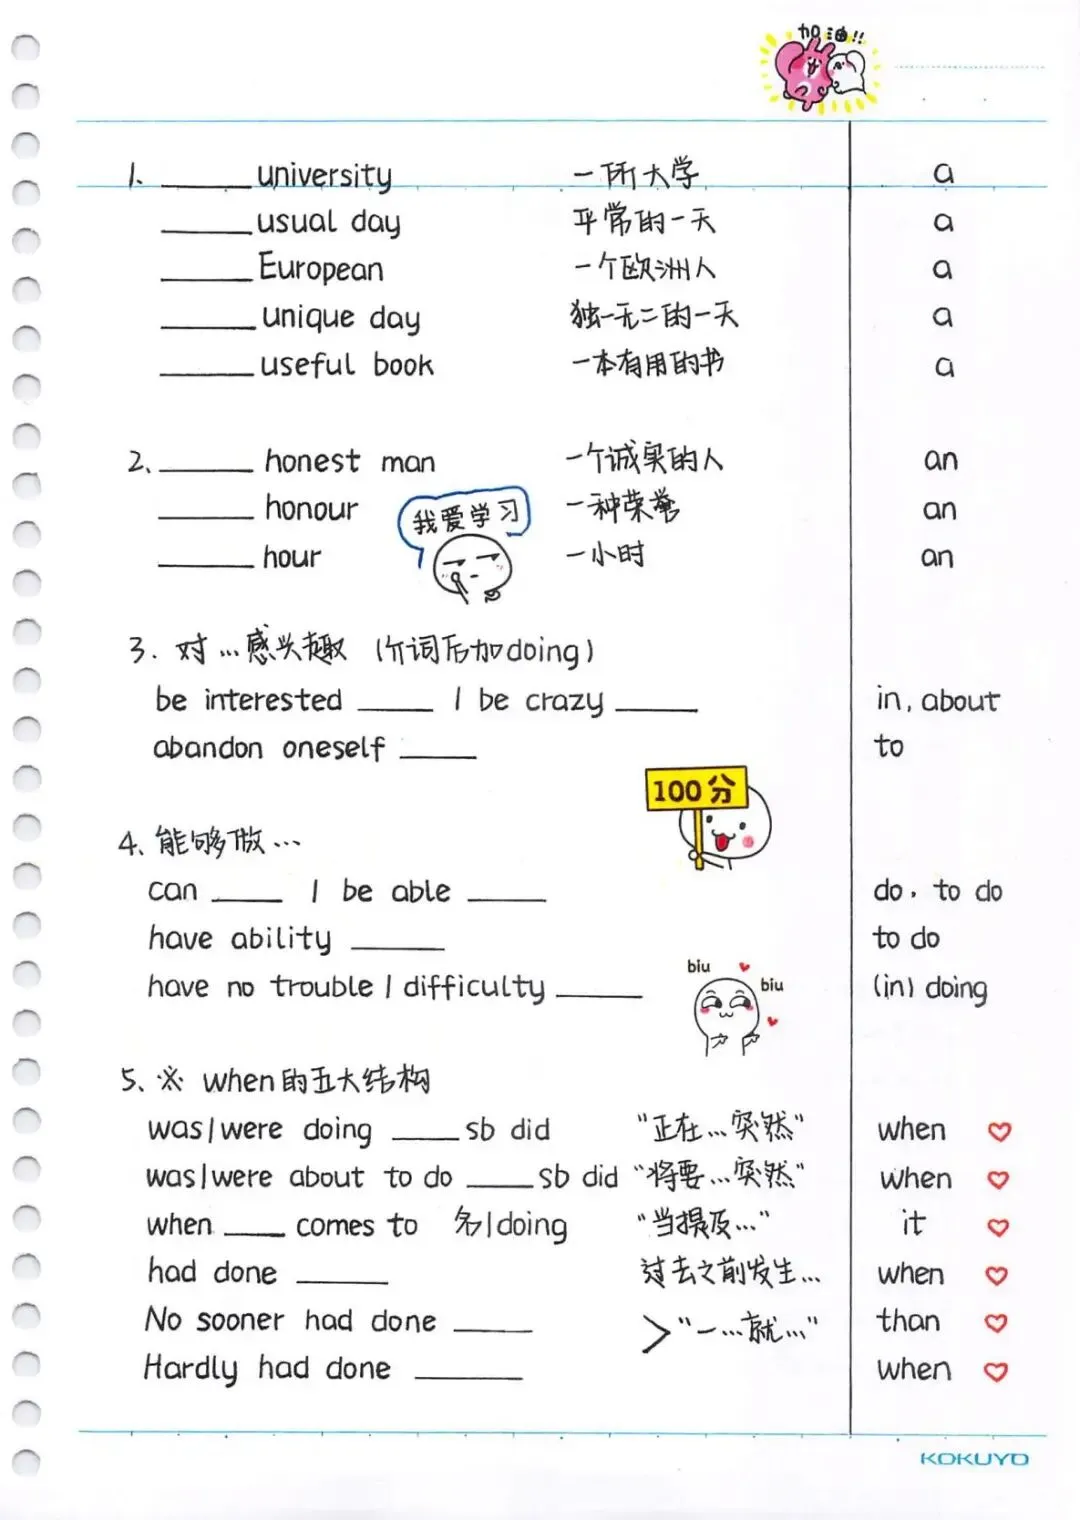 加油!!
1. ______ university 一所大学 a
______ usual day 平常的一天 a
______ European 一个欧洲人 a
______ unique day 独一无二的一天 a
______ useful book 一本有用的书 a
2、______ honest man 一个诚实的人 an
______ honour 一种荣誉 an
我爱学习
______ hour 一小时 an
3. 对…感兴趣 (介词后加doing)
be interested _____ / be crazy _____ in, about
abandon oneself _____ to
100分
4、能够做…
can _____ / be able _____ do, to do
have ability ______ to do
have no trouble / difficulty ______ (in) doing
biu biu
5、※ when的五大结构
was/were doing _____ sb did "正在…突然" when ♡
was/were about to do _____ sb did "将要…突然" when ♡
when ____ comes to 名/doing "当提及…" it ♡
had done ______ 过去之前发生… when ♡
No sooner had done _____ than ♡
>"一…就…"
Hardly had done _______ when ♡
KOKUYO